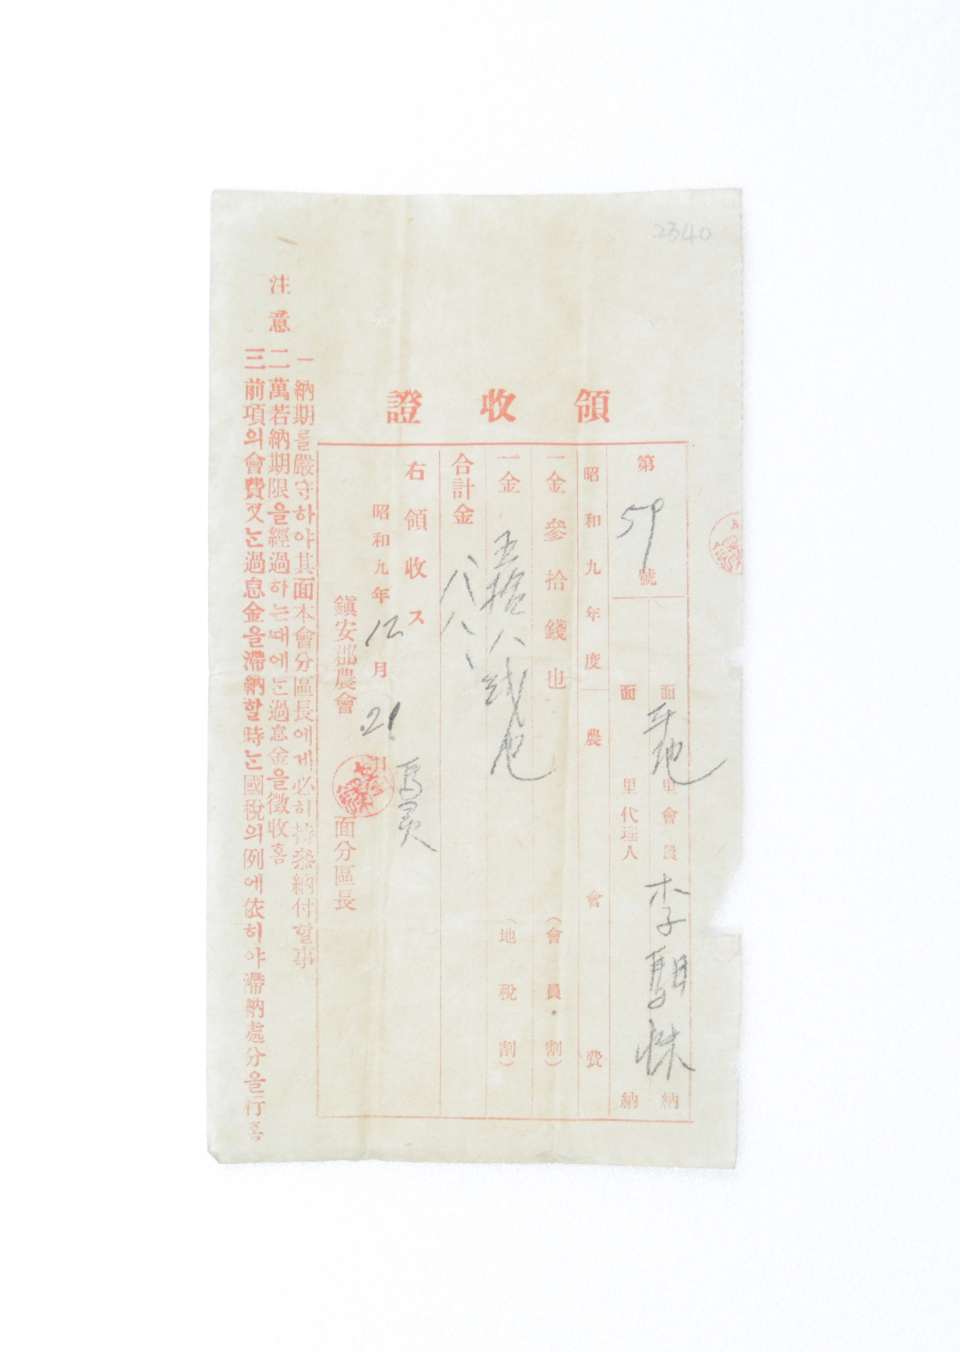 2340
領收證
第59號
面平地里會員李駬㭐納
面里代理人納
昭和九年度農會費
一金參拾錢也(會員割)
一金五拾八戋也(地稅割)
合計金八八、
右領收ス
昭和九年12月21日
鎭安郡農會馬灵面分區長
注意
一納期를嚴守하야其面本會分區長에게必히持參納付할事
二萬若納期限을經過하는때에는過怠金을徵收홈
三前項의會費又는過怠金을滯納할時는國稅의例에依하야滯納處分을行홈